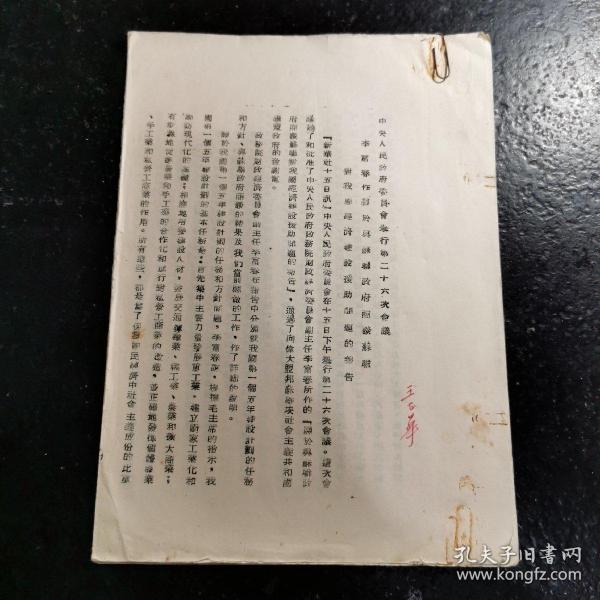 中央人民政府委員會舉行第二十六次會議
李富春作關於與蘇聯政府商談蘇聯
對我國經濟建設援助問題的報告
『新華社十五日訊』中央人民政府委員會在十五日下午舉行第二十六次會議。這次會
議聽了和批准了中央人民政府政務院財政經濟委員會副主任李富春所作的「關於與蘇聯政
府商談蘇聯對我國經濟建設援助問題的報告」，通過了向偉大盟邦蘇維埃社會主義共和國
聯盟政府的
政務院財政經濟委員會副主任李富春在報告中分別就我國第一個五年建設計劃的任務
和方針、與蘇聯政府商談的結果及我們當前應做的工作，作了詳細的說明。
關於我國第一個五年建設計劃的任務和方針問題，李富春說，根據毛主席的指示，我
國第一個五年建設計劃的基本任務是：首先集中主要力量發展重工業，建立國家工業化和
國防現代化的基礎；相應地培養建設人材，發展交通運輸業、輕工業、農業和擴大商業；
有步驟地促進農業和手工業的合作化和進行對私營工商業的改造，並正確地發揮個體農業
、手工業和私營工商業的作用。所有這些，都是為了保證國民經濟中社會主義成份的比重
孔夫子旧书网
www.kongfz.com